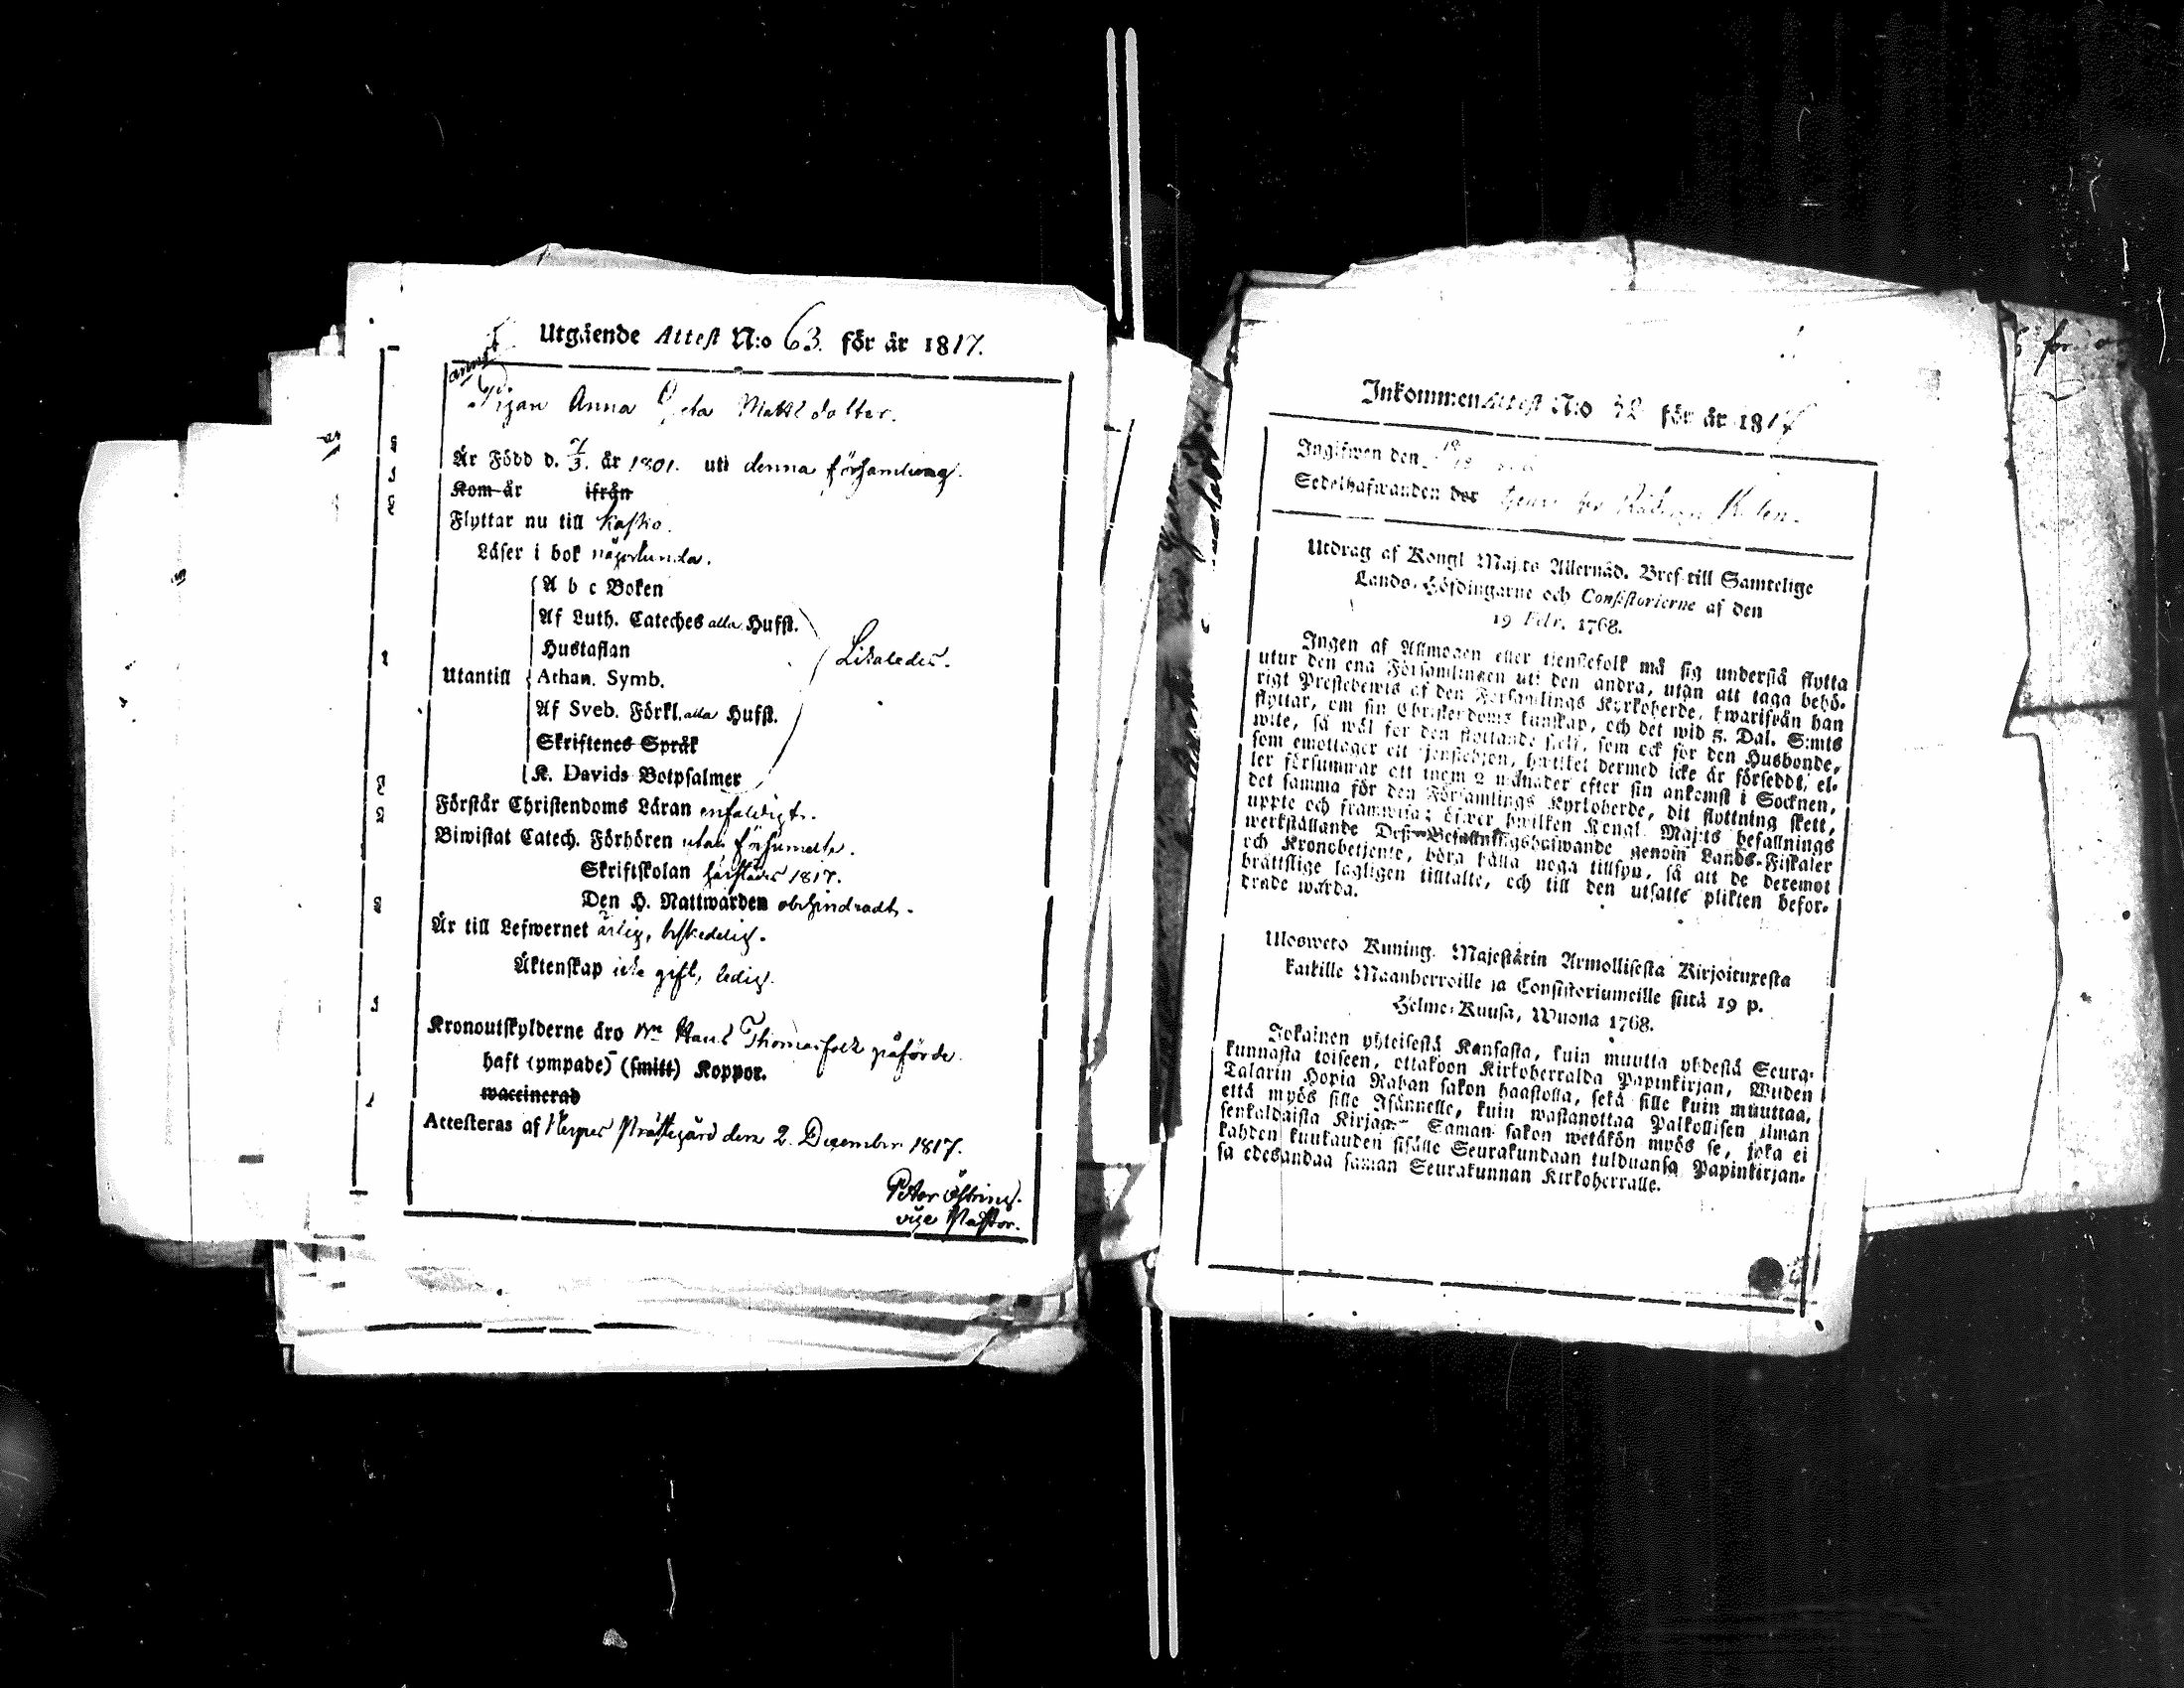 Utgående Attest N:o 63. för år 1817.
Pigan Anna Greta Matts dotter.
Är Född d. 7/3. år 1801. uti denna församling.
Kom år ifrån
Flyttar nu till Kasko.
Läser i bok någorlunda.
A b c Boken
Af Luth. Cateches alla Hufst.
Hustaflan
Likaledes.
Utantill
Athan. Symb.
Af Sveb. Förkl. alla Hufst.
Skriftenes Språk
K. Davids Botpsalmer
Förstår Christendoms Läran enfaldigt.
Biwistat Catech. Förhören utan försummelse.
Skriftskolan härstädes 1817.
Den H. Nattwarden obehindradt.
Är till Lefwernet ärlig, beskedelig.
Äktenskap icke gift, ledig.
Kronoutskylderne äro Hans Thomasfolk påförde.
haft (ympade) (smitt) Koppor.
waccinerad
Attesteras af Nerpes Prästegård den 2. December 1817.
Peter Östring.
vice Pastor.
Inkommen Attest N:o 42 för år 1817
Ingifwen den
Sedelhafwanden
Utdrag af Kongl Maj:ts Allernåd. Bref till Samtelige
Lands-Höfdingarne och Consistorierne af den
19 Febr. 1768.
Ingen af Allmogen eller tienstefolk må sig understå flytta
utur den ena Församlingen uti den andra, utan att taga behö-
rigt Prestebewis af den Församlings Kyrkoherde, hwarifrån han
flyttar, om sin Christendoms kunskap, och det wid 5. Dal. S:mts
wite, så wäl för den flyttande sielf, som ock för den Husbonde,
som emottager ett tjenstehjon, hwilket dermed icke är försedde, el-
ler försummar att inom 2 månader efter sin ankomst i Socknen,
det samma för den Församlings Kyrkoherde, dit flyttning skett,
uppte och framwisa; öfwer hwilken Kongl. Maj:ts befallnings
werkställande Dess Befallningshafwande genom Lands-Fiskaler
och Kronobetjente, böra hålla noga tillsyn, så att de deremot
brättslige lagligen tilltalte, och till den utsatte plikten befor-
drade warda.
Ulosweto Kuning. Majestätin Armollisesta Kirjoituxesta
kaikille Maanherroille ja Consistoriumeille siitä 19 p.
Helme-Kuusa, Wuona 1768.
Jokainen yhteisestä Kansasta, kuin muutta yhdestä Seura-
kunnasta toiseen, ottakoon Kirkoherralda Papinkirjan, Wiiden
Talarin Hopia Rahan sakon haastolla, sekä sille kuin muuttaa,
että myös sille Isännelle, kuin wastanottaa Palkollisen ilman
senkaldaista Kirjaa. Saman sakon wetäkön myös se, joka ei
kahden kuukauden sisälle Seurakundaan tulduansa Papinkirjan-
sa edesandaa saman Seurakunnan Kirkoherralle.